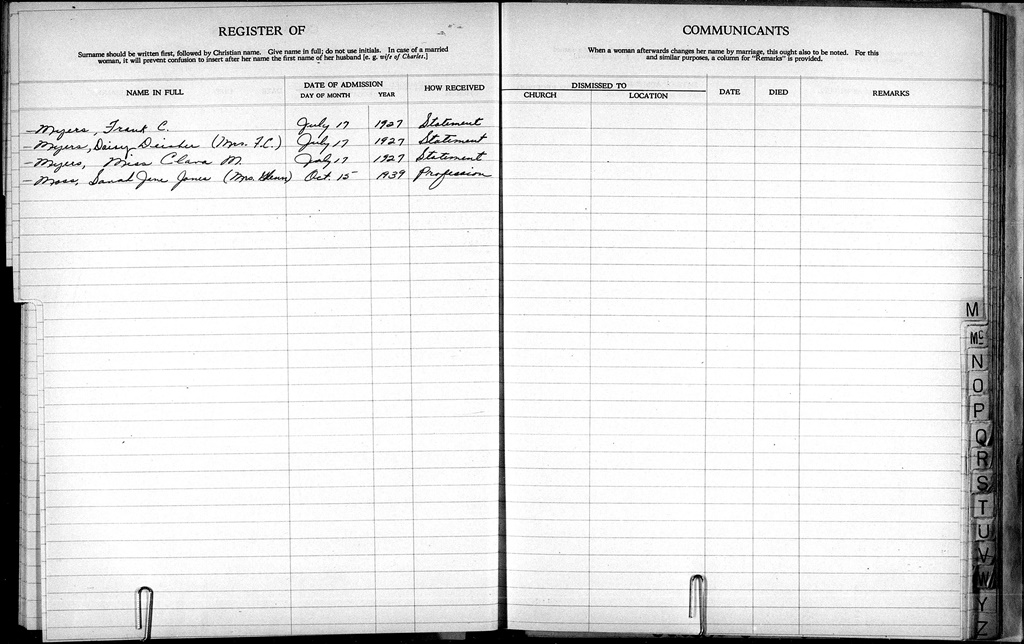 REGISTER OF
Surname should be written first, followed by Christian name. Give name in full; do not use initials. In case of a married
woman, it will prevent confusion to insert after her name the first name of her husband [e. g. wife of Charles.]
NAME IN FULL
DATE OF ADMISSION
DAY OF MONTH YEAR
HOW RECEIVED
Myers, Frank C. July 17 1927 Statement
Myers, Daisy Deisher (Mrs. F.C.) July 17 1927 Statement
Myers, Miss Clara M. July 17 1927 Statement
Moss, Sarah Jene Jones (Mrs. Glenn) Oct. 15 1939 Profession
COMMUNICANTS
When a woman afterwards changes her name by marriage, this ought also to be noted. For this
and similar purposes, a column for "Remarks" is provided.
DISMISSED TO
CHURCH LOCATION
DATE
DIED
REMARKS
M
Mc
N
O
P
Q
R
S
T
U
V
W
Y
Z